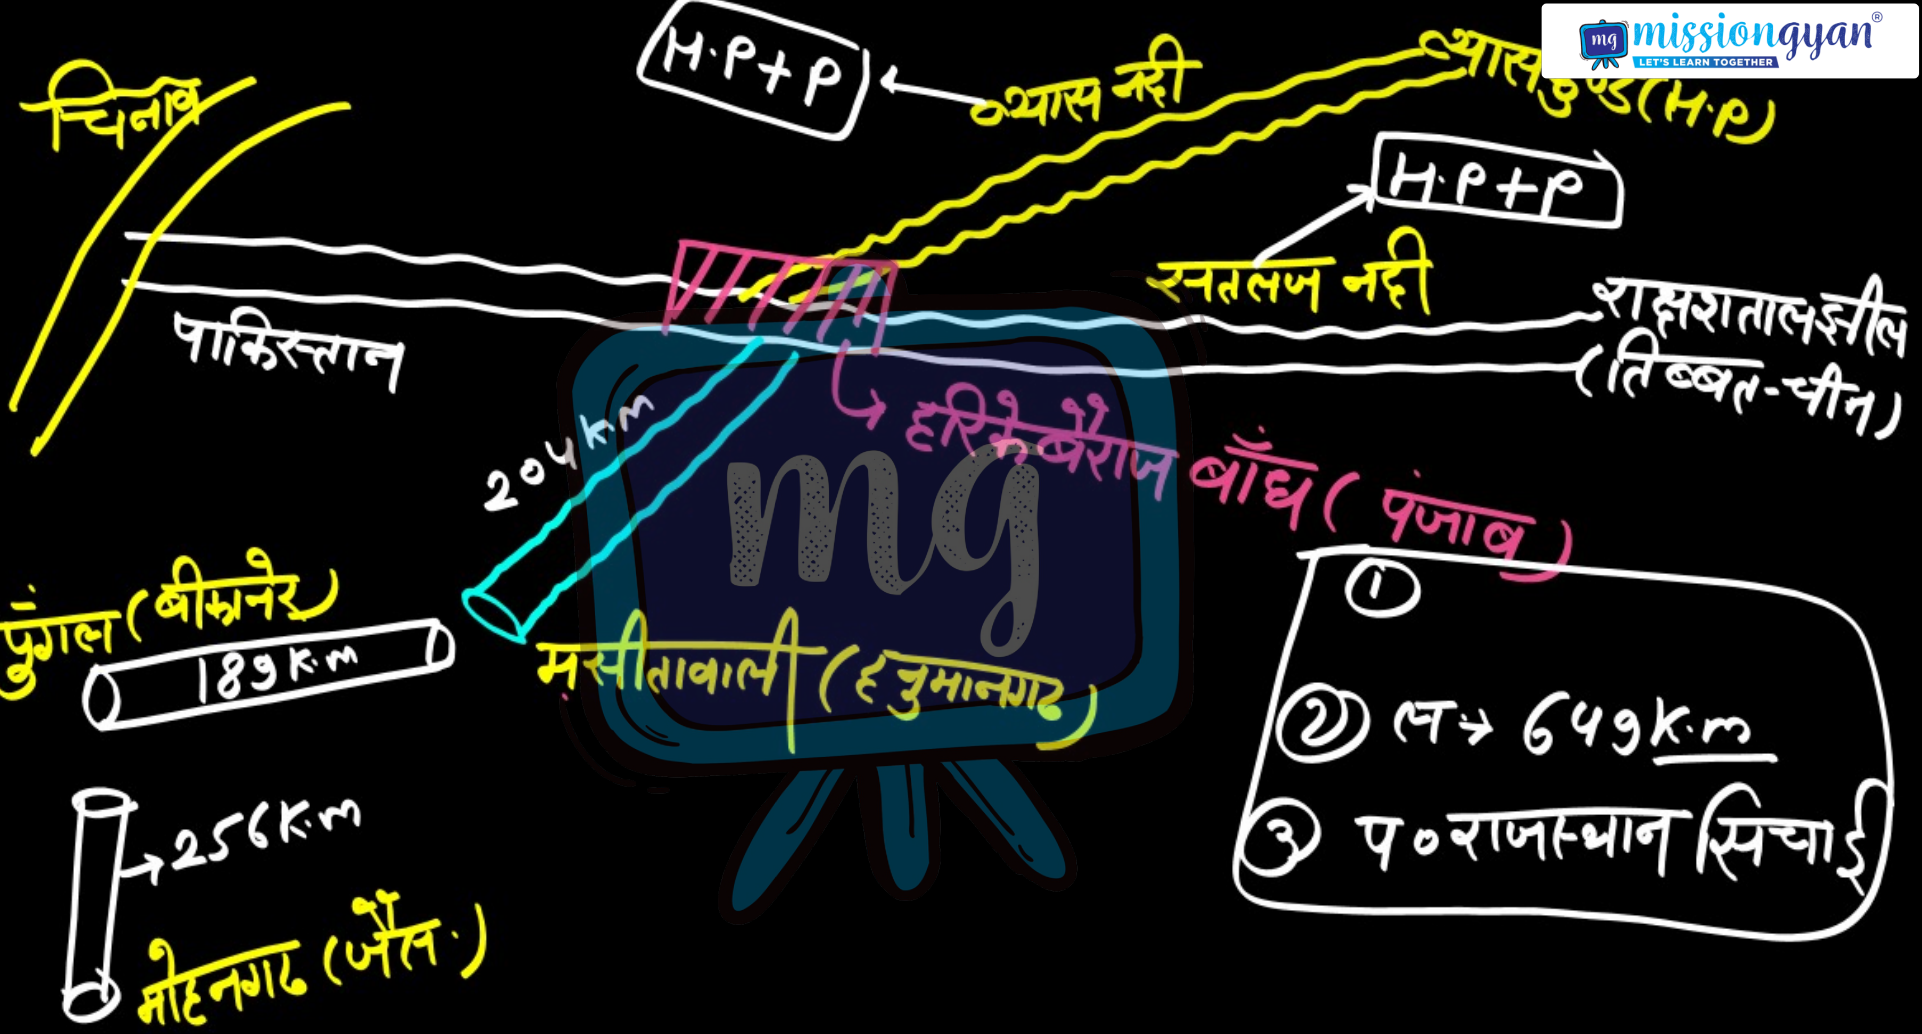 mg missiongyan®
LET'S LEARN TOGETHER
चिनाव
H.P+P
व्यास नदी
व्यासकुण्ड (H.P)
H.P+P
सतलज नदी
राक्षशताल झील
(तिब्बत-चीन)
पाकिस्तान
204 K.m
हरिके बैराज बाँध (पंजाब)
mg
पुंगल (बीकानेर)
189 K.m
मसीतावाली (हनुमानगढ)
256 K.m
मोहनगढ (जैस.)
①
② ल→ 649 K.m
③ प० राजस्थान सिचाई